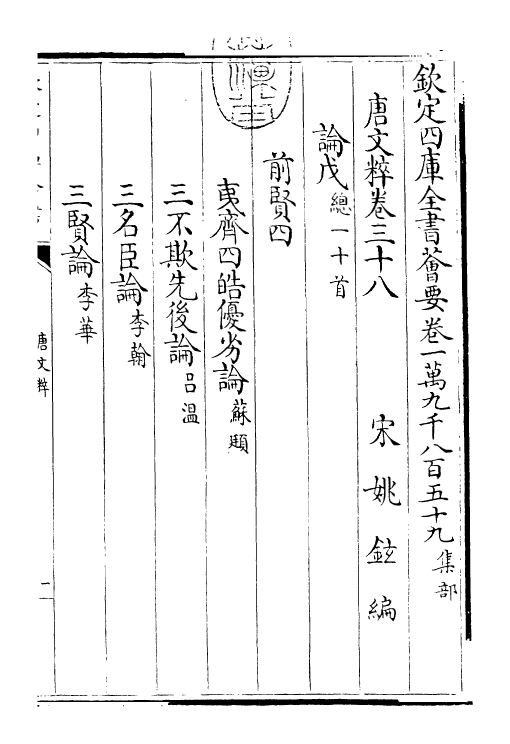 欽定四庫全書薈要卷一萬九千八百五十九集部
唐文粹卷三十八 宋姚鉉編
論戊總一十首
前賢四
夷齊四皓優劣論蘇頲
三不欺先後論吕溫
三名臣論李翰
三賢論李華
唐文粹
一